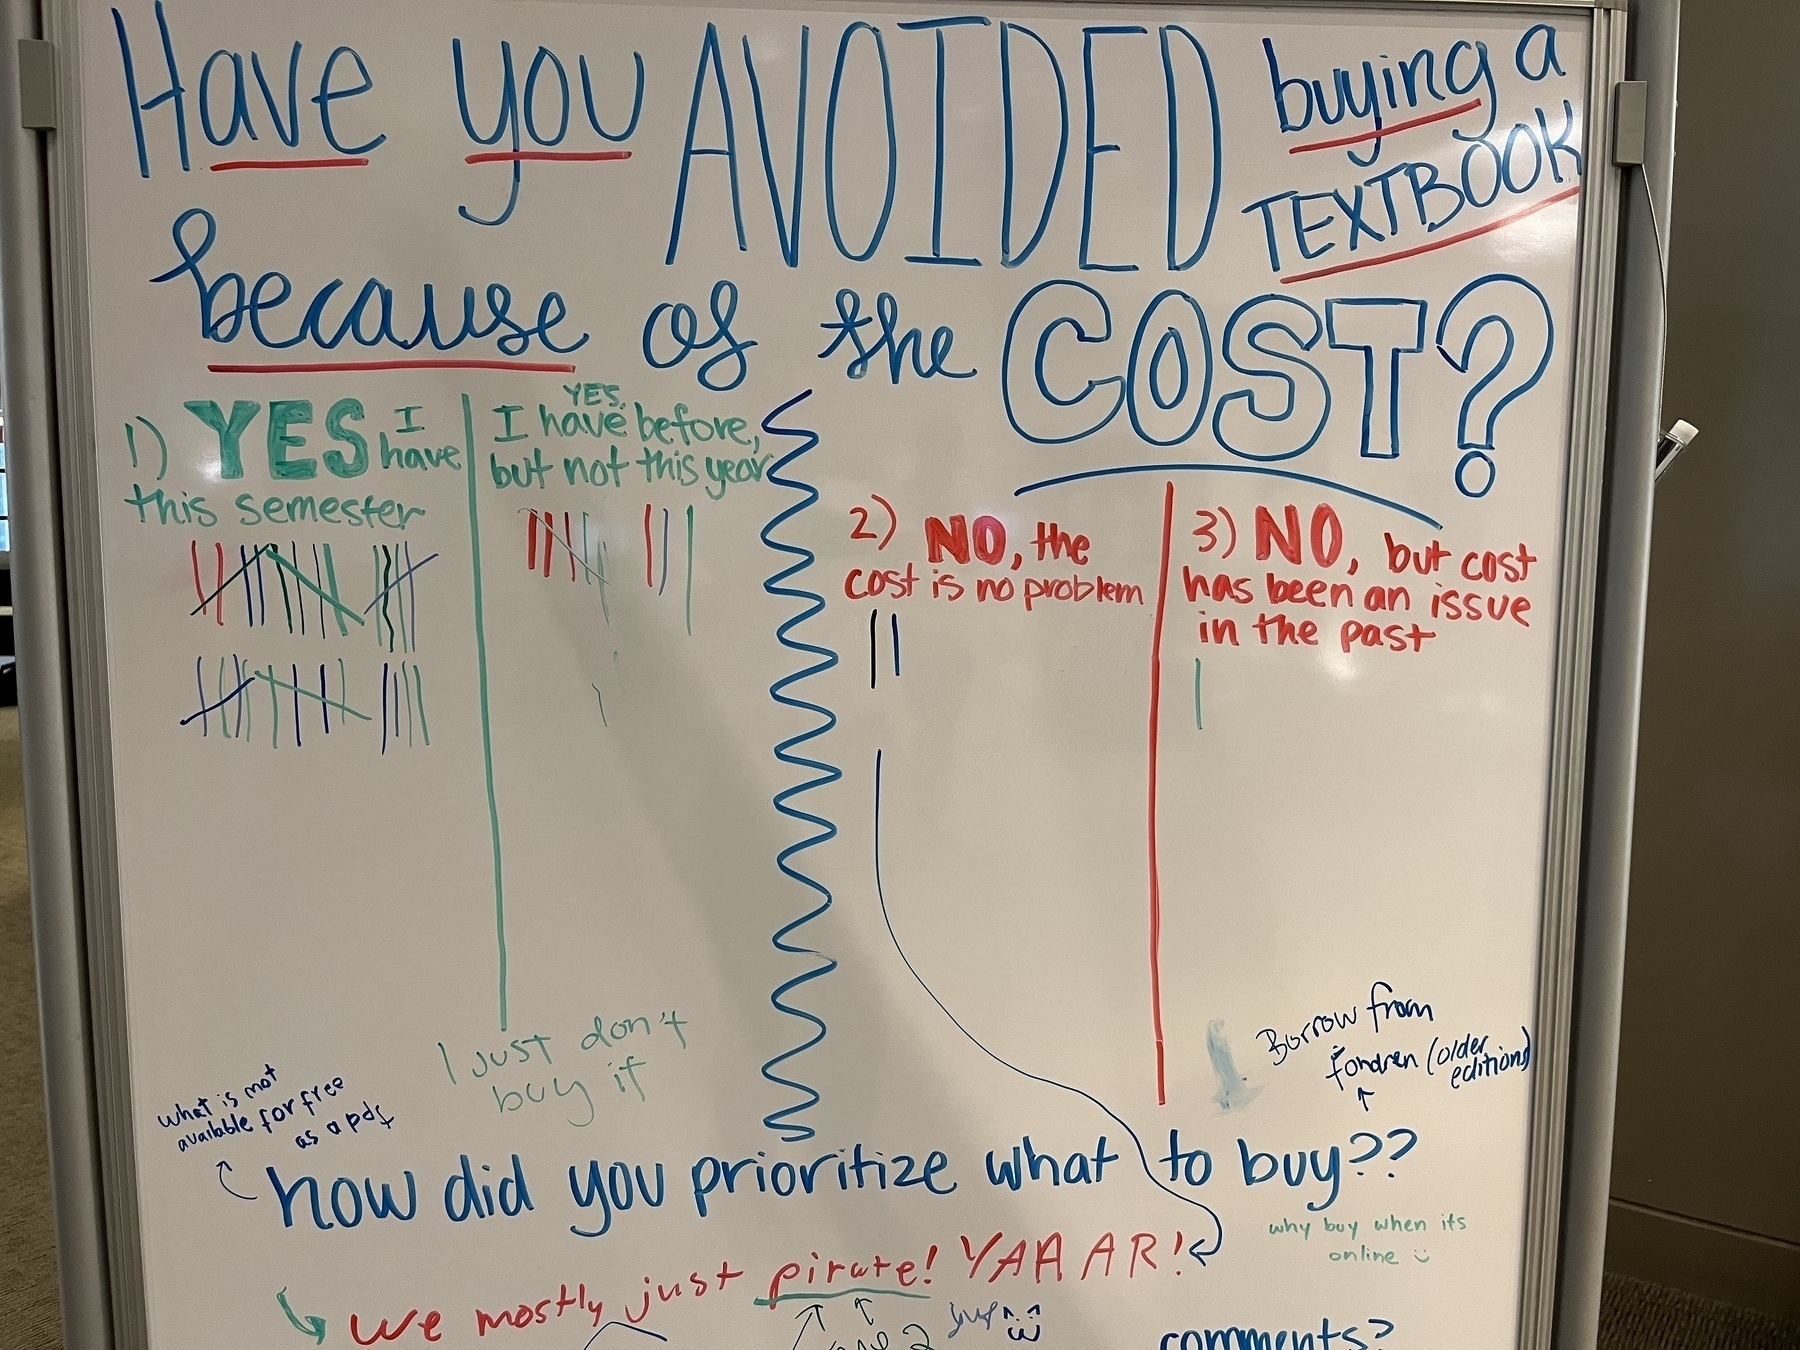 Have you AVOIDED buying a
TEXTBOOK
because of the COST?
1) YES I have
this semester
YES,
I have before,
but not this year
2) NO, the
cost is no problem
3) NO, but cost
has been an issue
in the past
I just don't
buy it
what is not
available for free
as a pdf
Borrow from
fondren (older
editions)
how did you prioritize what to buy??
why buy when its
online
we mostly just pirate! YAAAAR!
yup
comments?